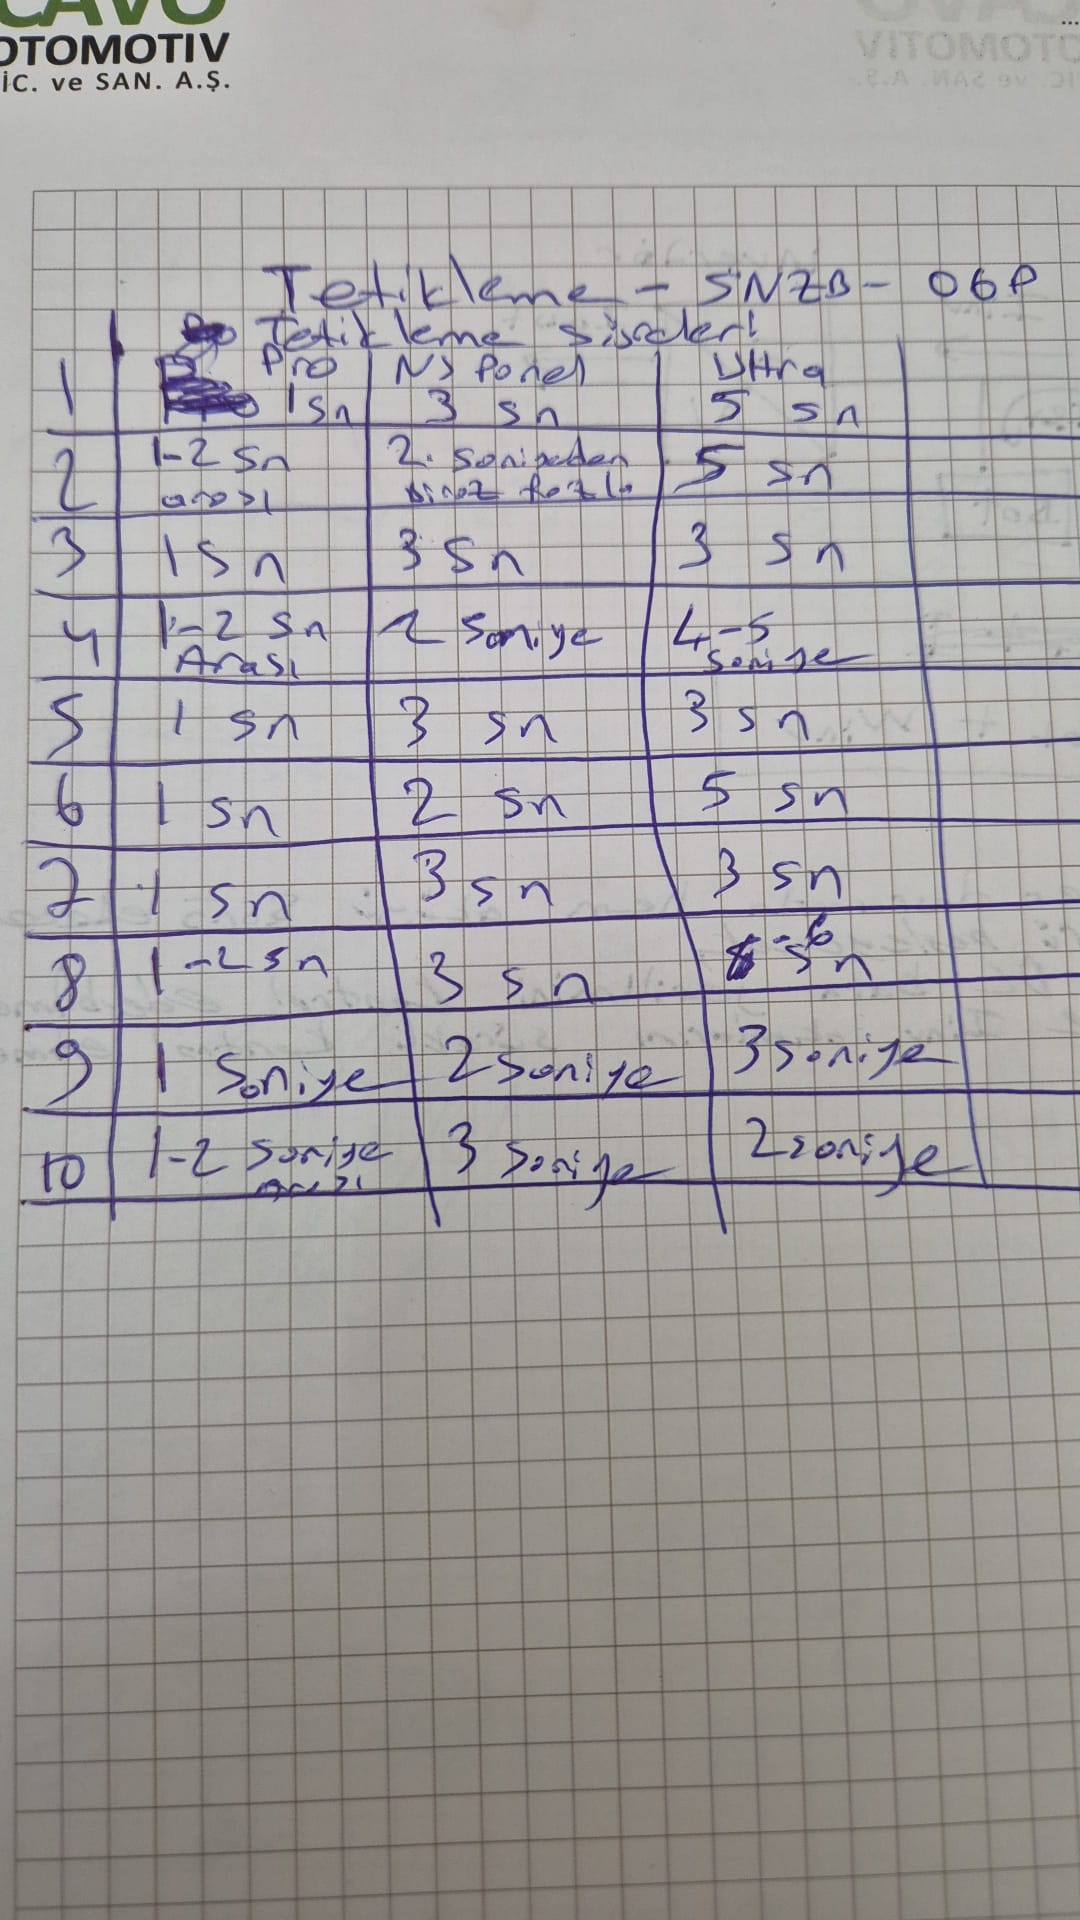 CAVO
OTOMOTIV
İC. ve SAN. A.Ş.
Tetikleme - SNZB - 06P
Tetikleme süreleri
Pro NS Panel Ultra
1 1 sn 3 sn 5 sn
2 1-2 sn arası 2. saniyeden biraz fazla 5 sn
3 1 sn 3 sn 3 sn
4 1-2 sn Arası 2 saniye 4-5 saniye
5 1 sn 3 sn 3 sn
6 1 sn 2 sn 5 sn
7 1 sn 3 sn 3 sn
8 1-2 sn 3 sn -6 sn
9 1 Saniye 2 saniye 3 saniye
10 1-2 saniye arası 3 saniye 2 saniye